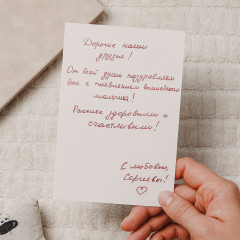 Дорогие наши
друзья!
От всей души поздравляем
Вас с появлением волшебного
малыша!
Растите здоровыми и
счастливыми!
С любовью,
Сергеевы!